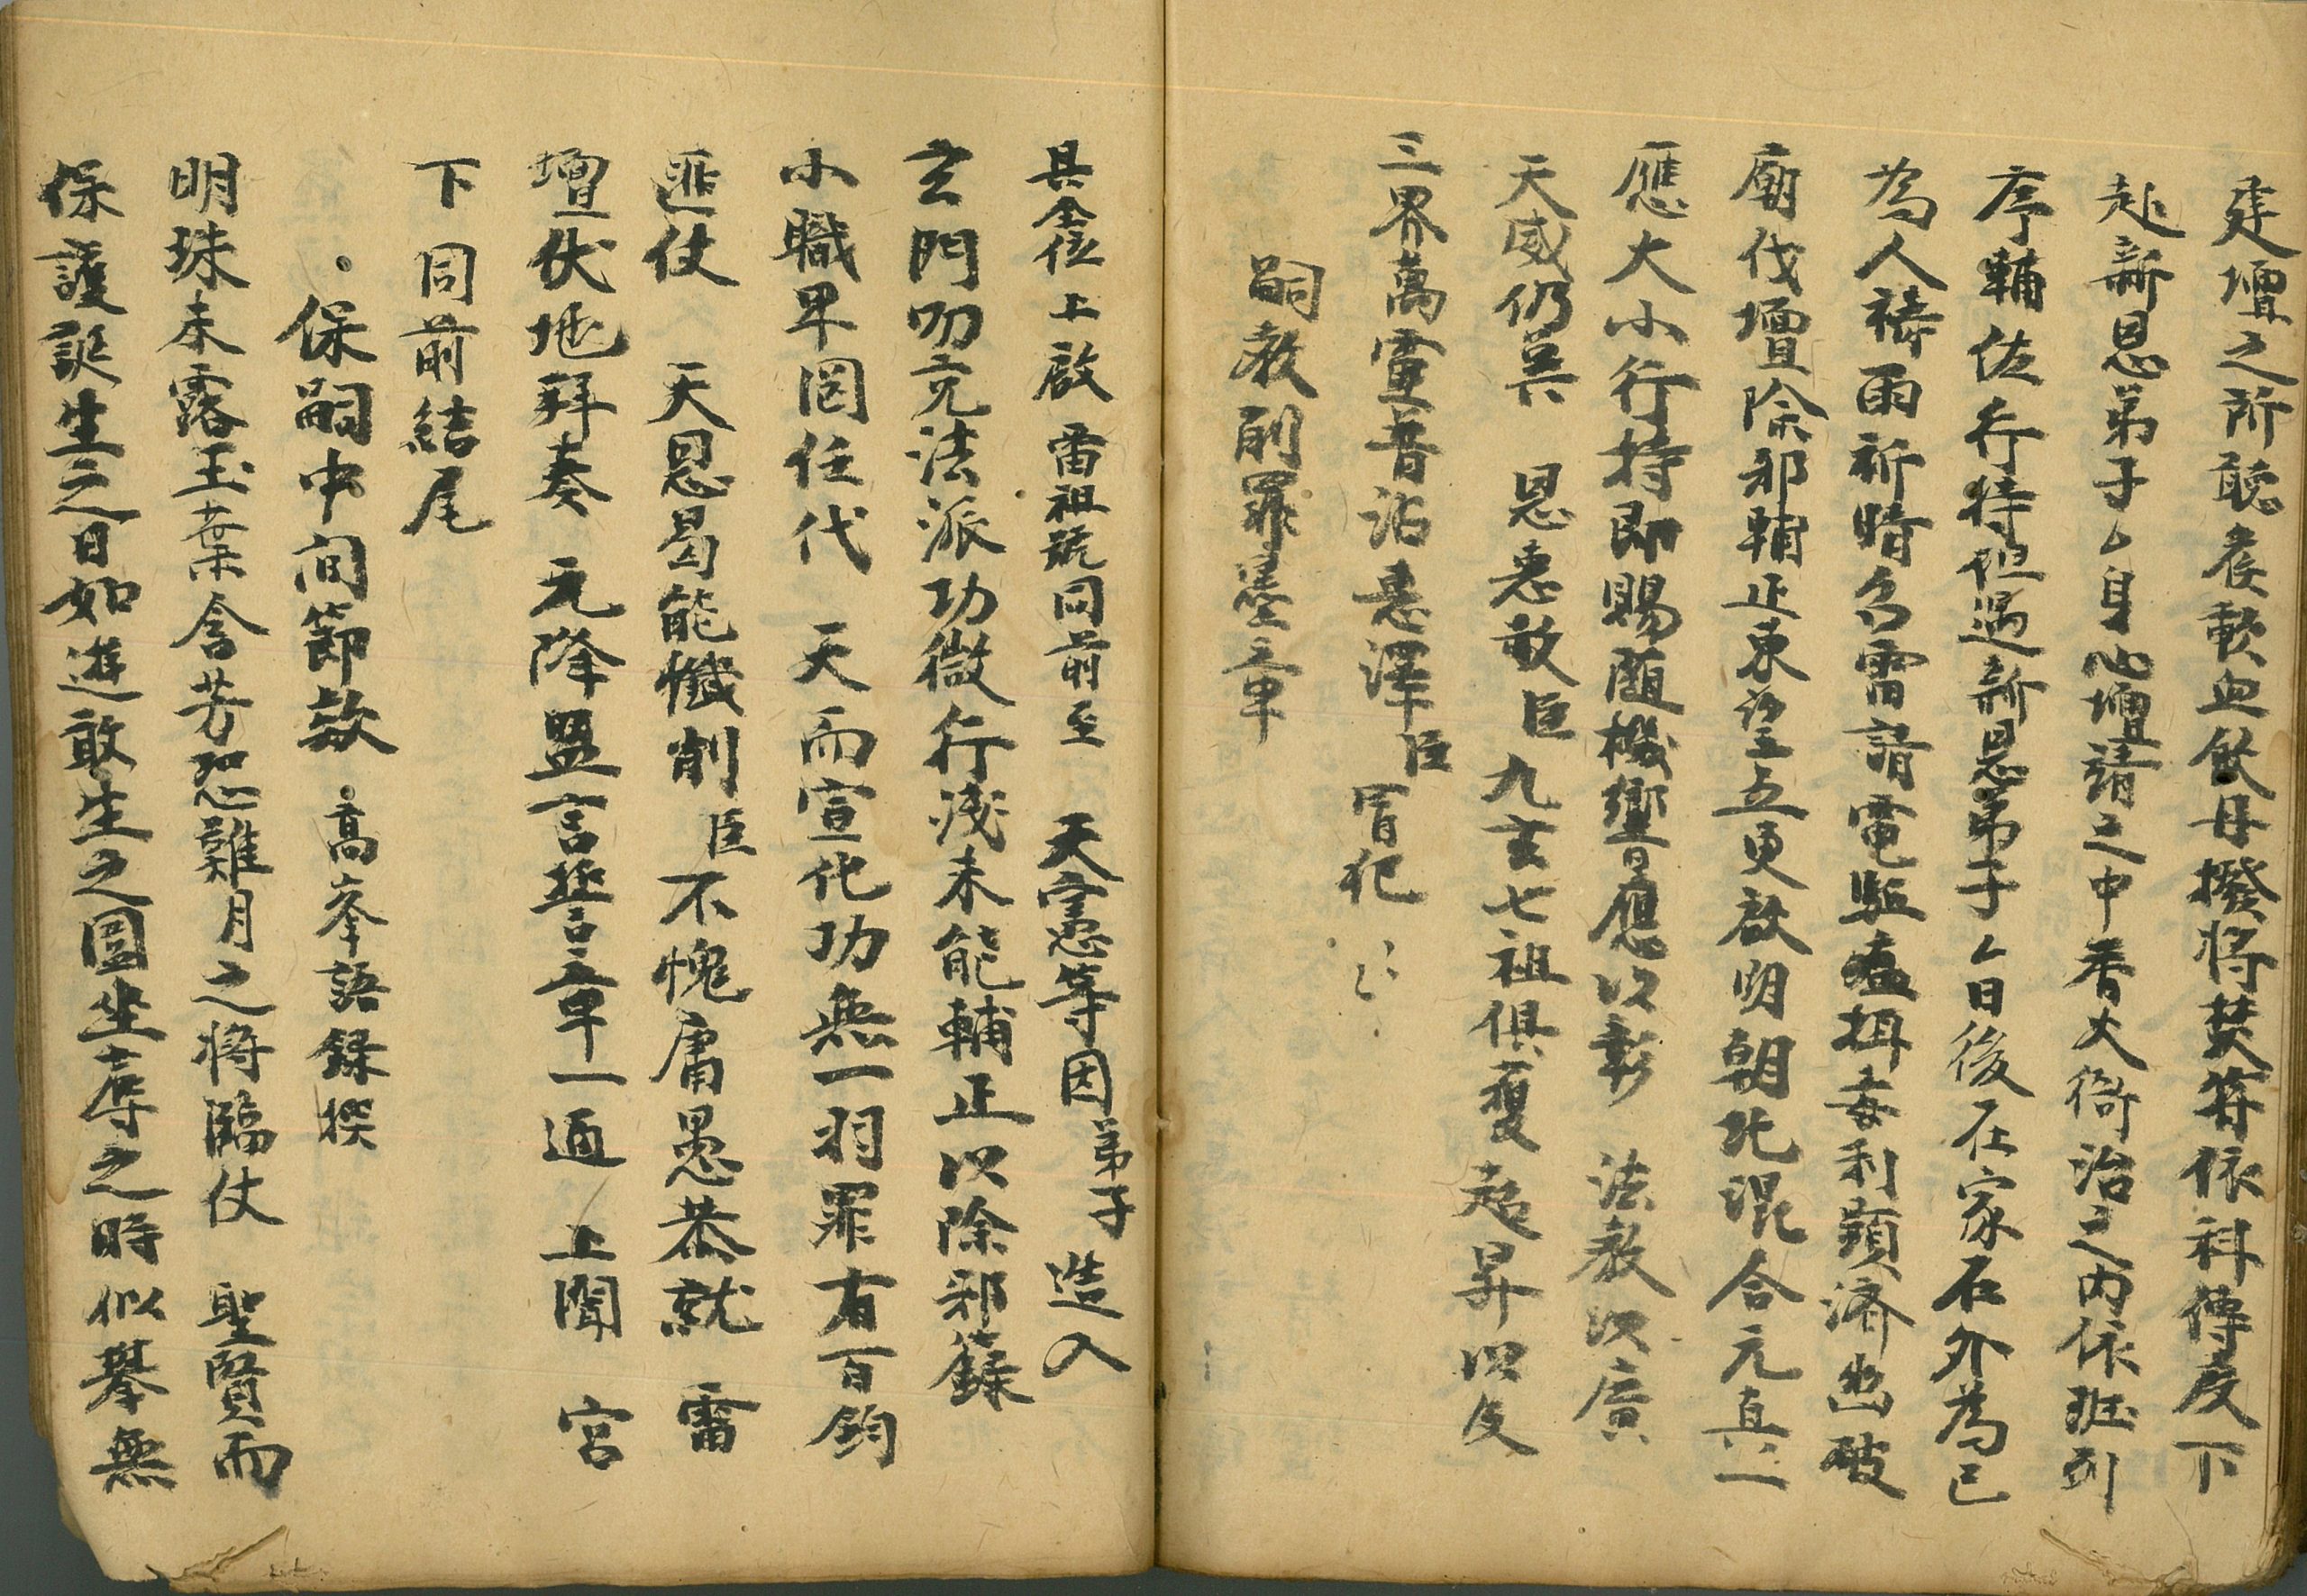 建壇之所聽候歃血飲丹撥将焚符依科傳度下
赴新恩弟子厶身心壇靖之中香火衙治之内依班列
序輔佐行持但遇新恩弟子厶日後在家在外為己
為人禱雨祈晴召雷請電驅瘟捐毒利顕济幽破
廟伐壇除邪輔正東望五更啟明朝北混合元真一
應大小行持即賜随機響應以彰 法教以廣
天威仍兾 恩惠敢臣九玄七祖俱獲超昇以及
三界萬靈普沾恵澤臣 冒犯
嗣教削罪墨章
具全位上啟 雷祖號同前至 天憲等因弟子 造入
玄門叨充法派功微行淺未能輔正以除邪籙
小職卑罔任代 天而宣化功無一羽罪有百鈞
匪仗 天恩曷能懺削臣不愧庸愚恭就 雷
壇伏地拜奏 元降盟言誓章一通 上聞 宮
下同前結尾
保嗣中间節款 高峯語録撰
明珠未露玉葉含芳恐難月之将臨仗 聖賢而
保護誕生之日如進敢生之圖坐蓐之時似舉無